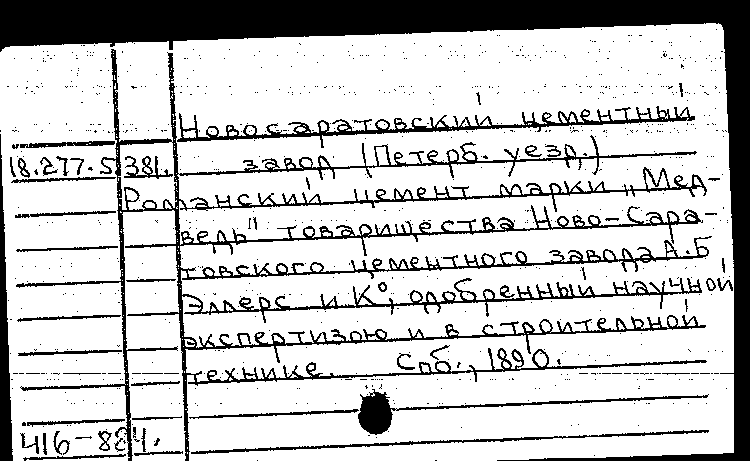 Новосаратовский цементный
18.277.5.381. завод (Петерб. уезд.)
Романский цемент марки „Мед-
ведь" товарищества Ново-Сара-
товского цементного завода А.Б
Эллерс и К°, одобренный научной
экспертизою и в строительной
технике. Спб., 1890.
416-884.